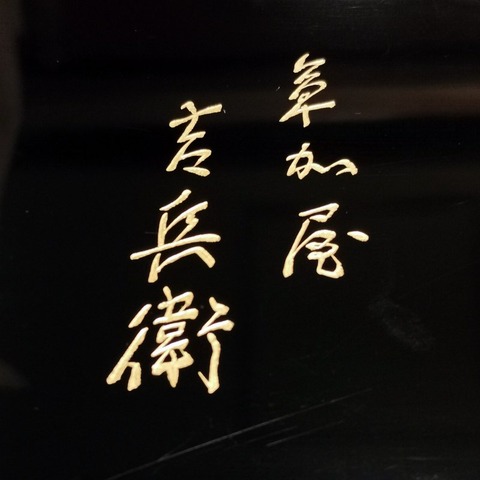 草加屋
吉兵衛